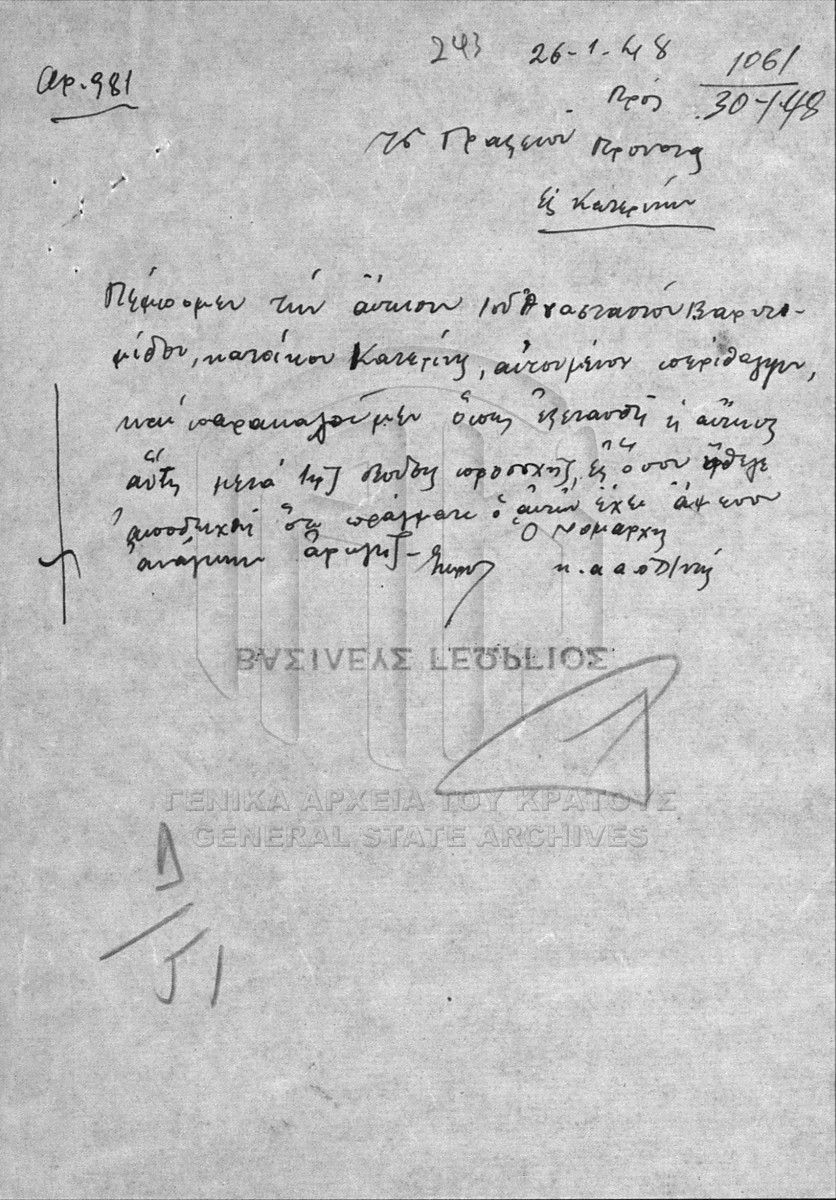 243 26-1-48
1061
Αρ. 981
Πρός 30-1-48
τὸ Γραφεῖον Προνοίας
Εἰς Κατερίνην
Πέμπομεν τὴν αἴτησιν τοῦ Ἀναστασίου
κατοίκου Κατερίνης, αἰτουμένου περίθαλψιν,
καὶ παρακαλοῦμεν ὅπως ἐξετασθῇ ἡ αἴτησις
αὕτη μετὰ τῆς δεούσης προσοχῆς, ἐφ' ὅσον ἤθελε
ἀποδειχθῆ ὅτι πράγματι ὁ αἰτῶν ἔχει ἄμεσον
ἀνάγκην ἀρωγῆς-
Ὁ Νομάρχης
κ.α.α. ὁ Δ/ντής
ΒΑΣΙΛΕΥΣ ΓΕΩΡΓΙΟΣ
ΓΕΝΙΚΑ ΑΡΧΕΙΑ ΤΟΥ ΚΡΑΤΟΥΣ
GENERAL STATE ARCHIVES